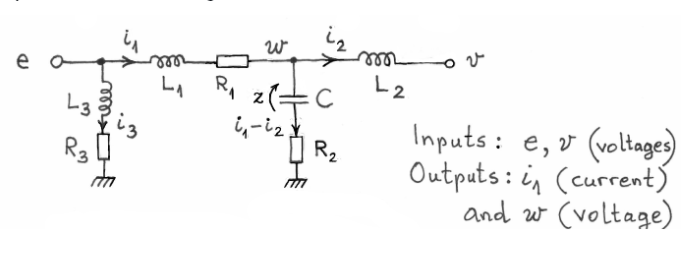 e i₁ L₁ R₁ w i₂ L₂ v
L₃ i₃ R₃ z C i₁-i₂ R₂
Inputs: e, v (voltages)
Outputs: i₁ (current)
and w (voltage)